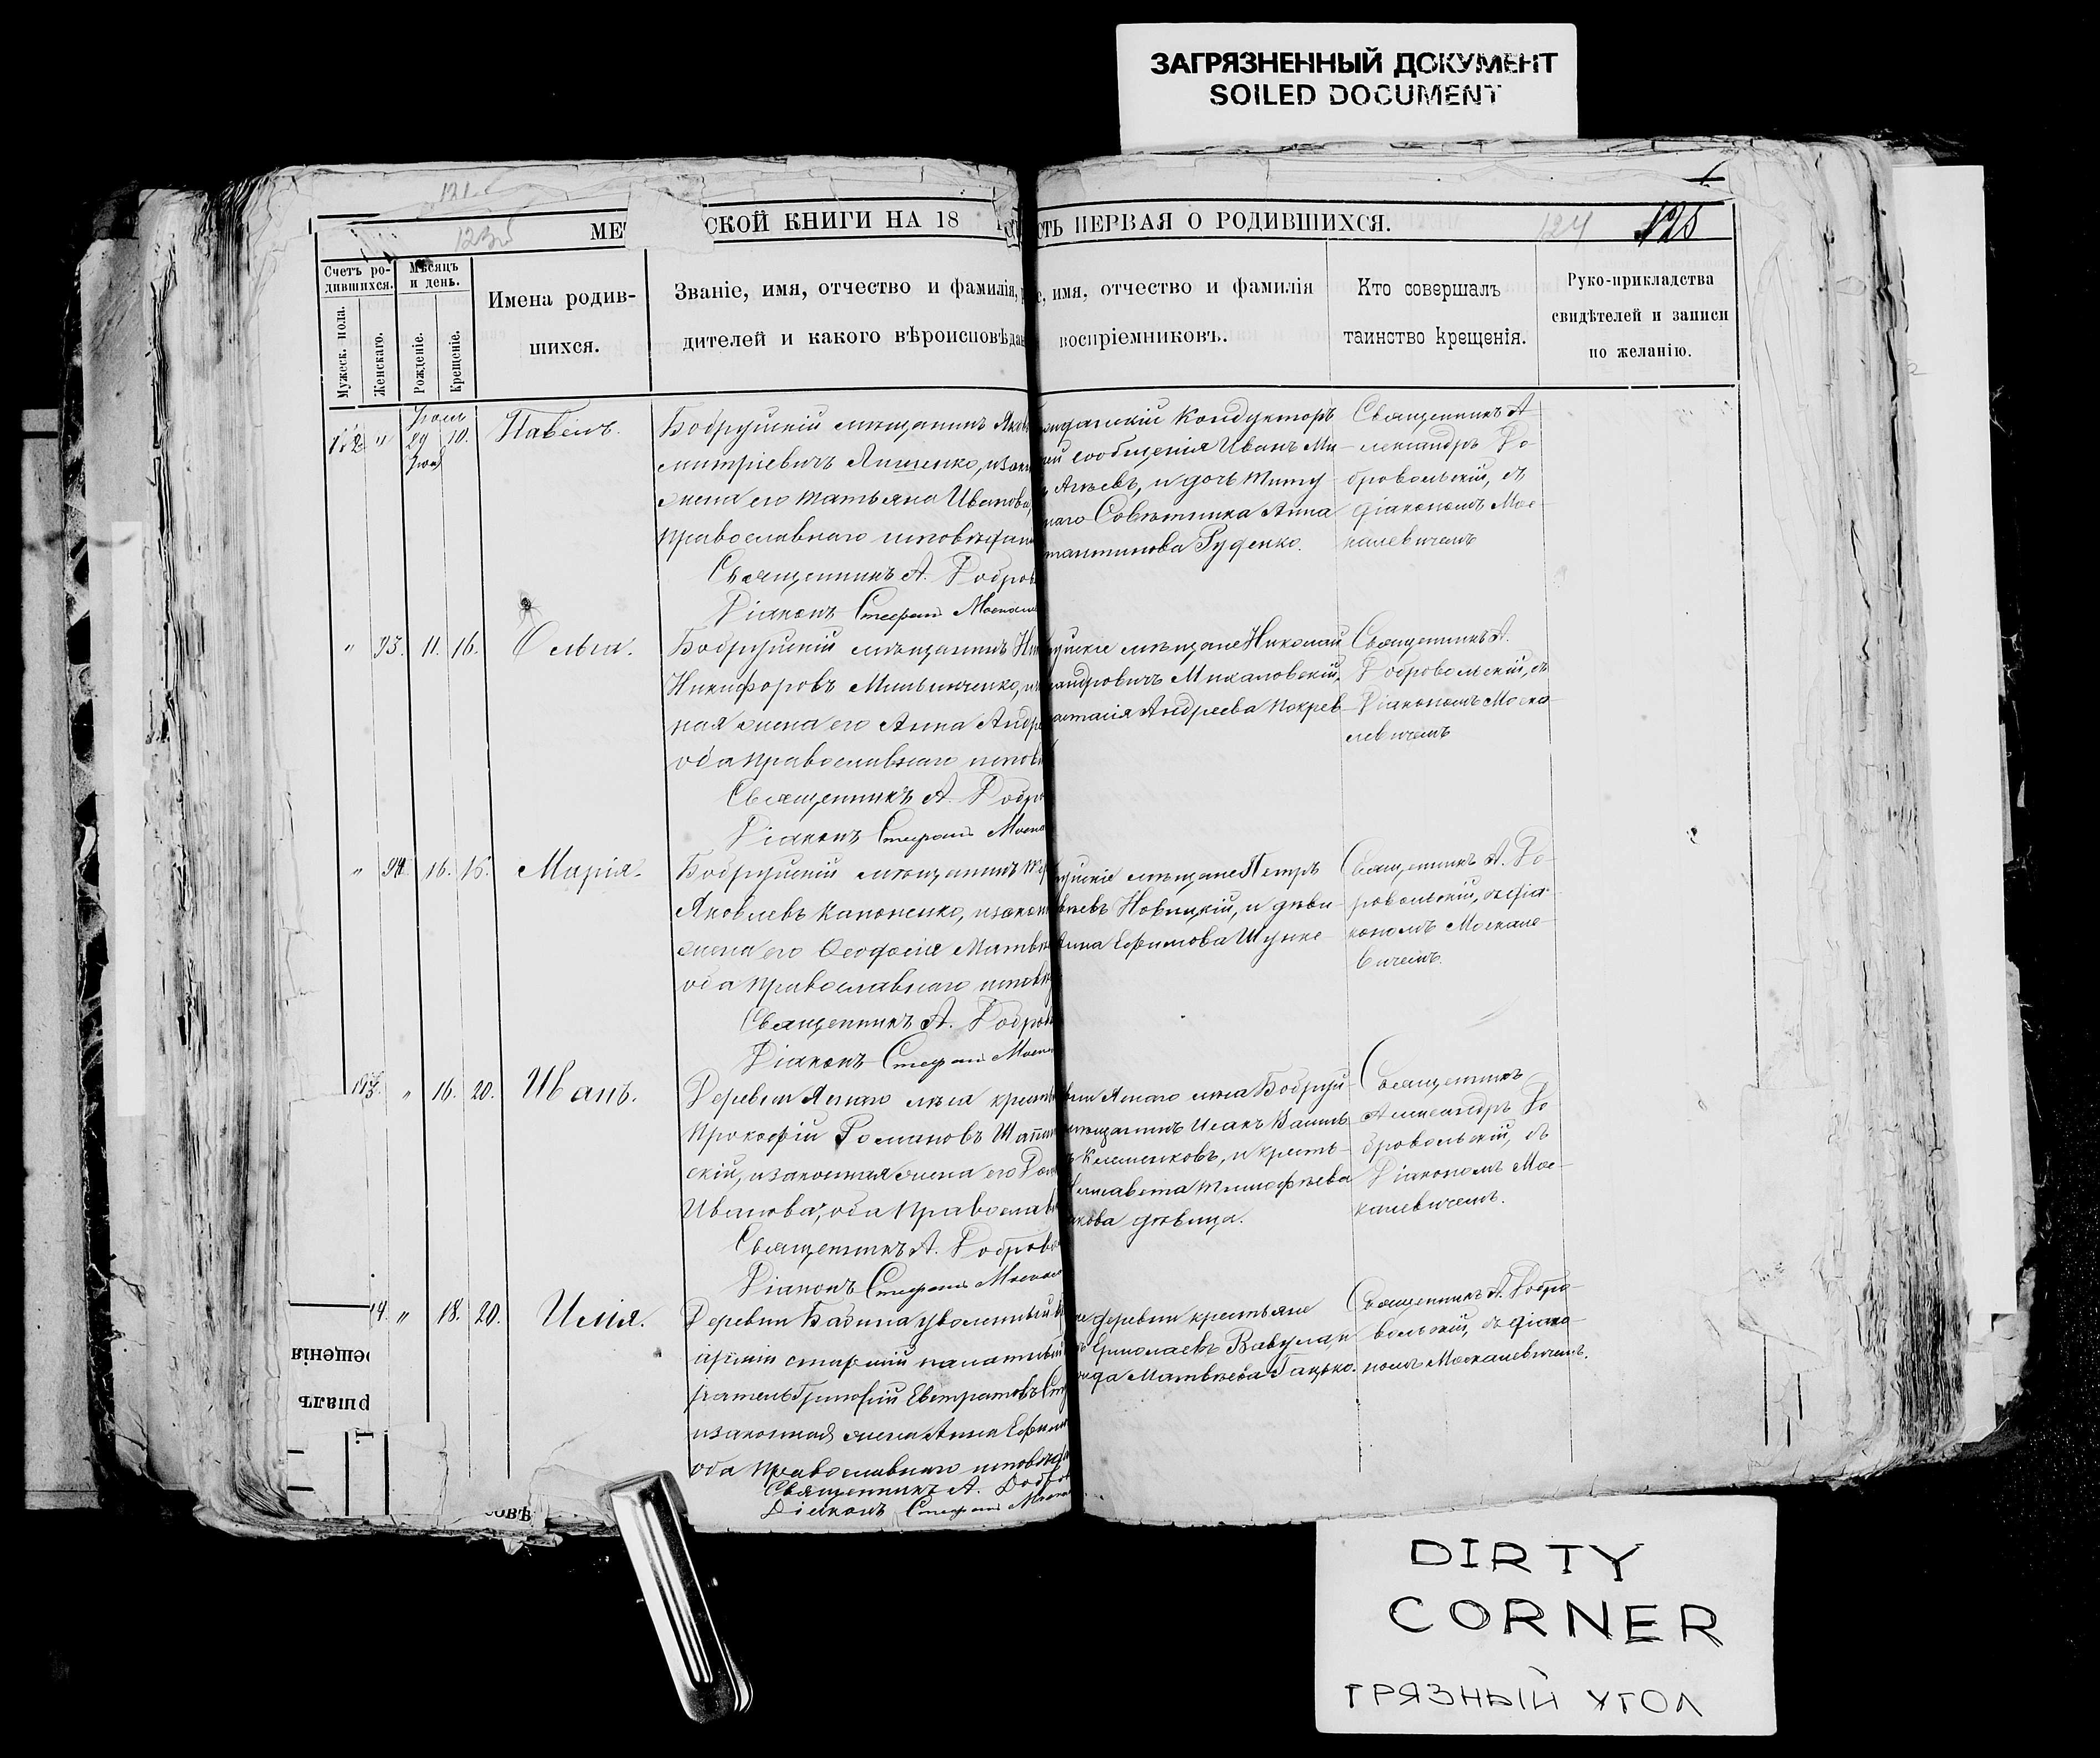 ЗАГРЯЗНЕННЫЙ ДОКУМЕНТ
SOILED DOCUMENT
121.
123об
МЕ СКОЙ КНИГИ НА 18
СТЬ ПЕРВАЯ О РОДИВШИХСЯ.
124 125
Счетъ ро-
дившихся.
Мужеск. пола.
Женскаго.
Мѣсяцъ
и день.
Рожденіе.
Крещеніе.
Имена родив-
шихся.
Званіе, имя, отчество и фамилія, р
дителей и какого вѣроисповѣдан
е, имя, отчество и фамилія
воспріемниковъ.
Кто совершалъ
таинство крещенія.
Руко-прикладства
свидѣтелей и записи
по желанію.
" 29 10. Павелъ.
Бобруйскій мѣщанинъ Яков
митріевичъ Ященко, и закон
жена его Татьяна Иванова,
православнаго исповѣдан
Священникъ А. Добров
Діаконъ Стефанъ Москал
Кондукторъ
сообщенія Иванъ Ми
Агѣевъ, и дочь Титу
наго Совѣтника Анна
стантинова Руденко.
Священникъ А
лександръ До
бровольскій, съ
діакономъ Мос-
калевичемъ
" 93. 11. 16. Ольга.
Бобруйскій мѣщанинъ Ни
Никифоровъ Мильниченко, и за
ная жена его Анна Андре
оба православнаго испов
Священникъ А. Добро
Діаконъ Стефанъ Моска
уйскіе мѣщане Николай
андровичъ Михаловскій,
астасія Андреева Покрев
Священникъ А.
Добровольскій, съ
Діакономъ Моска
левичемъ
" 94. 16. 16. Марія.
Бобруйскій мѣщанинъ
Яковлевъ Капоненко, и закон
жена его Ѳеодосія Матвѣ
оба православнаго исповѣ
Священникъ А. Добров
Діаконъ Стефанъ Моска
уйскіе мѣщане Петръ
Новицкій, и дѣви
Анна Ефимова Шунке
Священникъ А. До-
ровольскій, съ діа-
кономъ Москале-
вичемъ.
" 16. 20. Иванъ.
Деревни Яснаго лѣса крестья
Прокофій Романовъ Шапи
скій, и законная жена его Дом
Иванова, оба православ
Священникъ А. Добров
Діаконъ Стефанъ Москал
вни Яснаго лѣса Бобруй-
мѣщанинъ Исакъ Васил
Клименковъ, и кресть-
Елисавета Тимофѣева
кова дѣвица.
Священникъ
Александръ До
бровольскій, съ
Діакономъ Мос-
калевичемъ.
" 18. 20. Илія.
Деревни Бабина уволенный въ
арміи старшій палатный
Григорій Евстратовъ
и законная жена Анна Ефим
оба православнаго исповѣда
Священникъ А. Добров
Діаконъ Стефанъ Моска
же деревни крестьяне
Ермолаевъ Вавула, и
Матвѣева Гацько.
Священникъ А. Добро-
вольскій, съ діако-
номъ Москалевичемъ.
рещенія
ршалъ
ОВѢ
DIRTY
CORNER
ГРЯЗНЫЙ УГОЛ